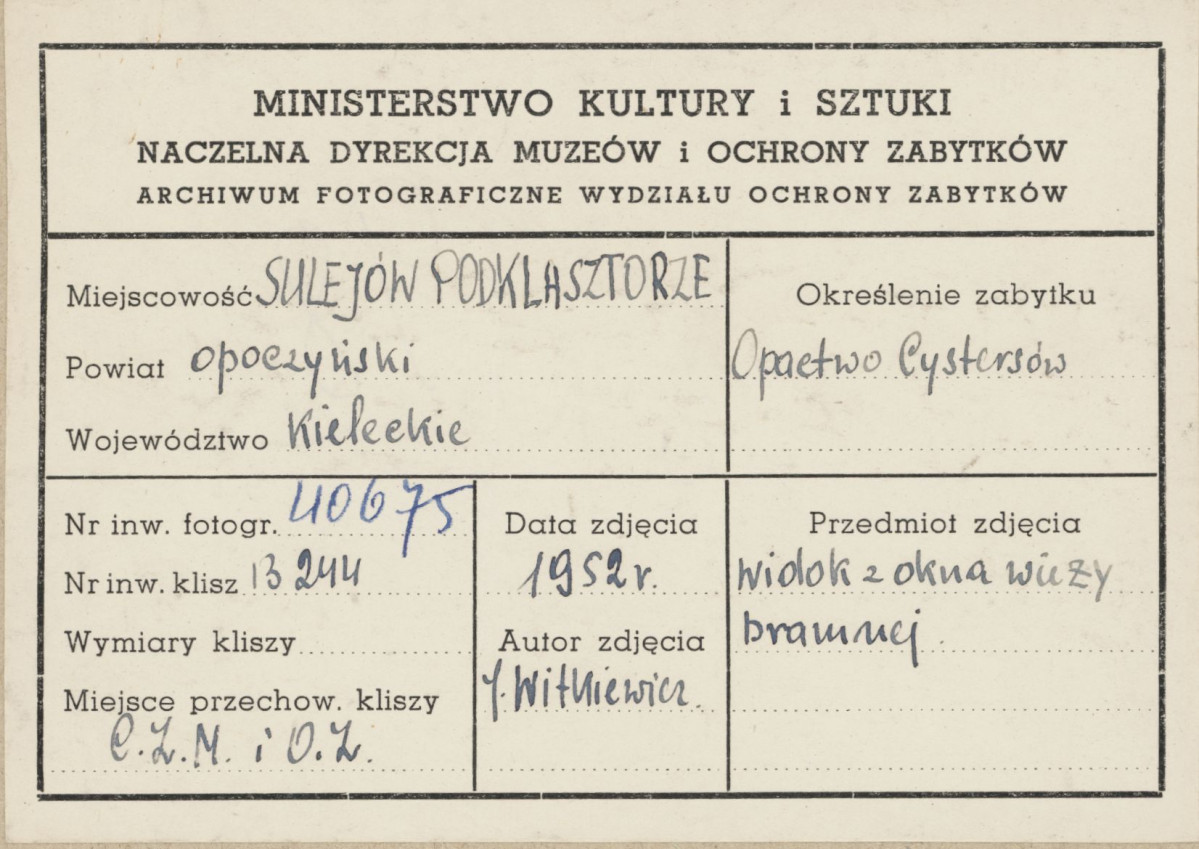 MINISTERSTWO KULTURY i SZTUKI
NACZELNA DYREKCJA MUZEÓW i OCHRONY ZABYTKÓW
ARCHIWUM FOTOGRAFICZNE WYDZIAŁU OCHRONY ZABYTKÓW
Miejscowość SULEJÓW PODKLASZTORZE
Powiat opoczyński
Województwo Kieleckie
Określenie zabytku
Opactwo Cystersów
Nr inw. fotogr. 40675
Nr inw. klisz B 244
Wymiary kliszy
Miejsce przechow. kliszy
C.Z.M. i O.Z.
Data zdjęcia
1952 r.
Autor zdjęcia
J. Witkiewicz.
Przedmiot zdjęcia
widok z okna wieży
bramnej.